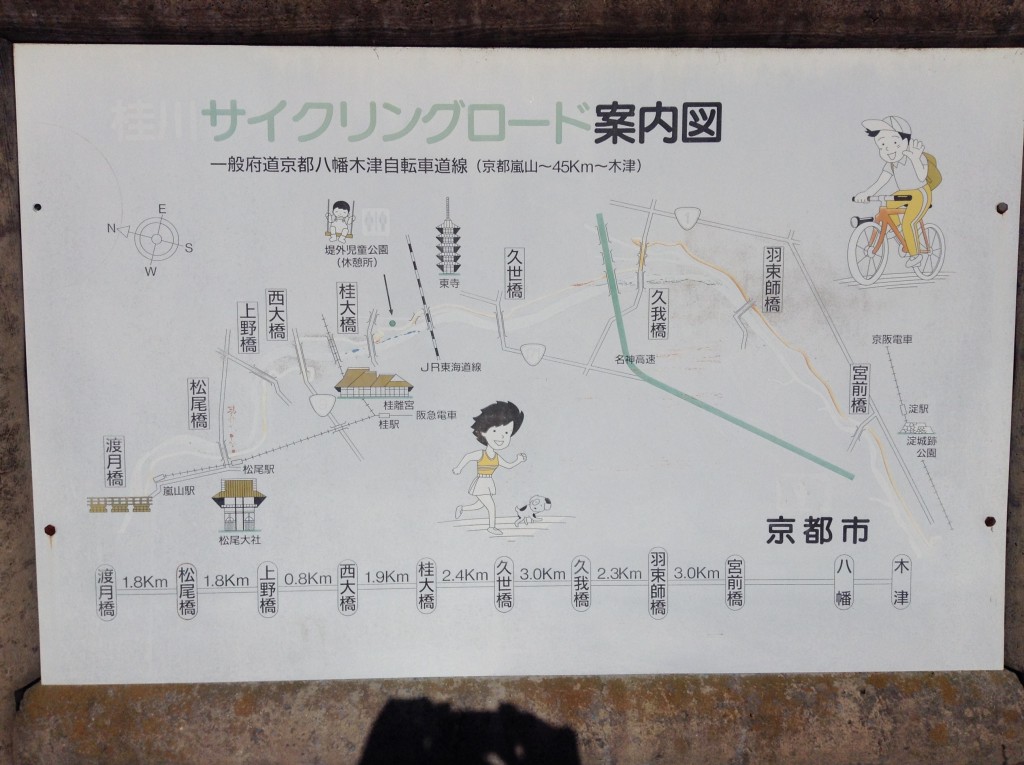 桂川サイクリングロード案内図
一般府道京都八幡木津自転車道線（京都嵐山～45Km～木津）
N
E
S
W
堤外児童公園
（休憩所）
東寺
久世橋
羽束師橋
西大橋
桂大橋
上野橋
久我橋
JR東海道線
名神高速
京阪電車
松尾橋
宮前橋
桂離宮
阪急電車
桂駅
淀駅
淀城跡
公園
渡月橋
松尾駅
嵐山駅
松尾大社
京都市
渡月橋 1.8Km 松尾橋 1.8Km 上野橋 0.8Km 西大橋 1.9Km 桂大橋 2.4Km 久世橋 3.0Km 久我橋 2.3Km 羽束師橋 3.0Km 宮前橋 八幡 木津